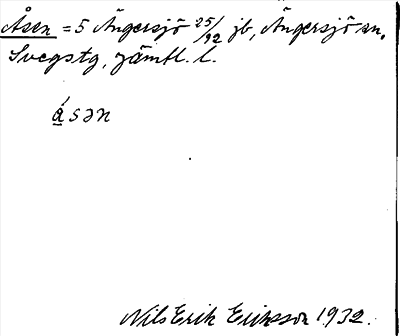 Åsen = 5 Ängersjö 25/92 jb, Ängersjö sn,
Svegs tg, Jämtl. l.
ásən
Nils Erik Eriksson 1932.